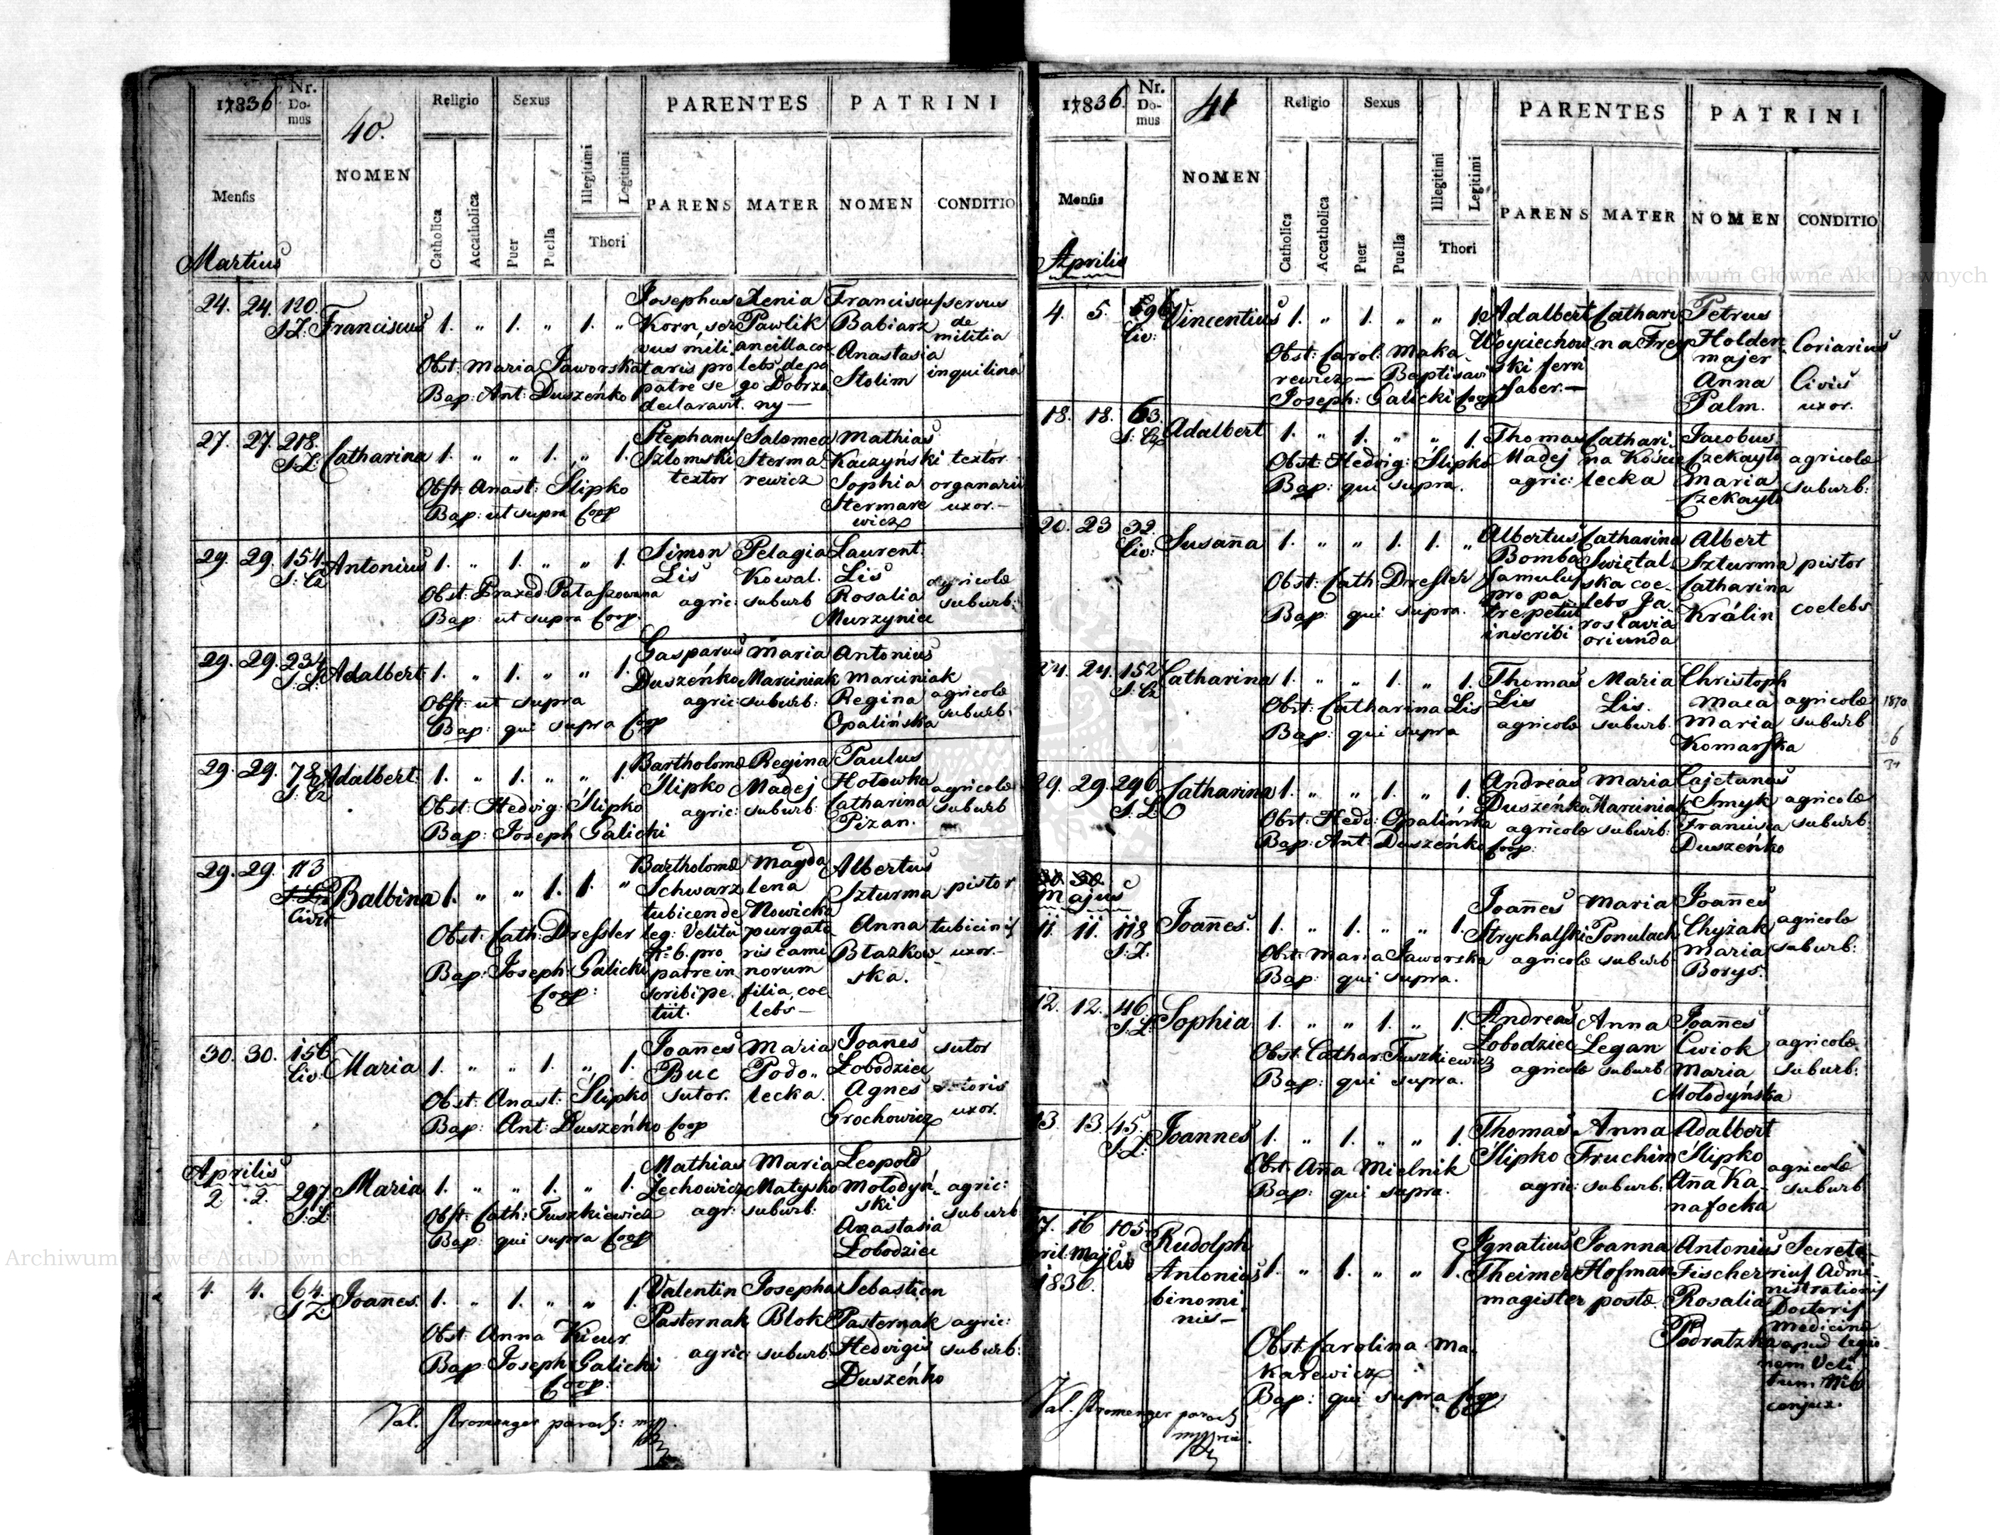 1836
Nr. Domus
40.
NOMEN
Religio
Sexus
Catholica
Accatholica
Puer
Puella
Illegitimi
Legitimi
Thori
PARENTES
PATRINI
PARENS
MATER
NOMEN
CONDITIO
Mensis
Martius
24. 24. 120. Franciscus 1. „ 1. „ 1. „
Josephus Xenia Franciscus servus
Korn, ser Pawlik Babiarz de
vus mili ancilla coe Anastasia militia
Obst: Maria Jaworska taris pro lebs de pa Stolim inquilina
Bap: Ant: Duszeńko patre se go Dobrza
declaravit. ny—
27. 27. 218. Catharina 1. „ „ 1. „ 1.
Stephanus Salomea Mathias
Szlomski Sterma Kaczyński textor
textor rewicz Sophia organarii
Obst: Anast: Slipko Stermare uxor.—
Bap: ut supra Coop wicz
29. 29. 154. Antonius 1. „ 1. „ „ 1.
Simon Pelagia Laurent.
Lis Kowal. Lis agricolae
agric: suburb Rosalia suburb:
Obst: Praxed: Pataszowana Murzyniec
Bap: ut supra Coop
29. 29. 234. Adalbert 1. „ 1. „ „ 1.
Gasparus Maria Antonius
Duszeńko Marciniak Marciniak
Obst: ut supra agric: suburb: Regina agricolae
Bap: qui supra Coop Opalińska suburb:
29. 29. 78. Adalbert 1. „ 1. „ „ 1.
Bartholomae Regina Paulus
Slipko Madej Hotowka agricolae
Obst: Hedvig: Slipko agric: suburb: Catharina suburb
Bap: Joseph Galicki Pizan.
29. 29. 113 Balbina 1. „ „ 1. 1. „
Civit
Bartholomae Magda Albertus
Schwarz lena Szturma pistor
tubicen de Nowicka
Obst: Cath: Dressler leg: Velitu purgato Anna tubicinis
No 6. pro ris cami Blazkow uxor.—
Bap: Joseph Galicki patre in norum ska.
Coop: scribi pe. filia, coe
tiit. lebs—
30. 30. 156 Maria 1. „ „ 1. „ 1.
Civ.
Joannes Maria Joannes sutor
Buc Podo„ Lobodziec
Obst: Anast: Slipko sutor. lecka. Agnes sutoris
Bap: Ant: Duszeńko Coop Grochowicz uxor.
Aprilis
2 2. 297. Maria 1. „ „ 1. „ 1.
Mathias Maria Leopold
Zechowicz Matysko Mołodyń agric:
Obst: Cath: Tuszkiewicz agr: suburb: ski suburb
Bap: qui supra Coop Anastasia
Lobodziec
4. 4. 64. Joannes. 1. „ 1. „ „ 1.
Valentin Josepha Sebastian
Pasternak Blok Pasternak agric:
Obst: Anna Kicur agric: suburb Hedvigis suburb:
Bap: Joseph Galicki Duszeńko
Coop:
Val. Stromenger paroch: mp.
1836.
Nr. Domus
41
NOMEN
Religio
Sexus
Catholica
Accatholica
Puer
Puella
Illegitimi
Legitimi
Thori
PARENTES
PATRINI
PARENS
MATER
NOMEN
CONDITIO
Mensis
Aprilis
4. 5. Vincentius 1. „ 1. „ „ 1.
Civ:
Adalbert Cathari Petrus
Woyciechow na Frey Holden Coriarius
Obst: Carol: Maka ski ferri majer
rewicz— Baptisavi faber.— Anna Civis
Joseph: Galicki Coop Palm. uxor.
18. 18. 63. Adalbert 1. „ 1. „ „ 1.
Thomas Cathari Jacobus
Obst: Hedvig: Slipko Madej na Koście Czekayło agricolae
Bap: qui supra. agric: lecka Maria suburb:
Czekayło
20. 23 32. Susanna 1. „ „ 1. 1. „
Civ:
Albertus Catharina Albert
Bomba Swiętal Szturma pistor
Obst: Cath: Dressler famulus ska coe Catharina
Bap: qui supra. pro pa lebs Ja Králin coelebs
tre petiit roslavia
inscribi oriunda
24. 24. 152 Catharina 1. „ „ 1. „ 1.
Thomas Maria Christoph
Obst: Catharina Lis Lis Lis. Maca agricolae
Bap: qui supra agricolae suburb Maria suburb
Komarska
29. 29. 296 Catharina 1. „ „ 1. „ 1.
Andreas Maria Cajetanus
Duszeńko Marciniak Smyk agricolae
Obst: Hedv: Opalińska agricolae suburb: Francisca suburb:
Bap: Ant: Duszeńko Coop: Duszeńko
Majus
11. 11. 118 Joannes. 1. „ 1. „ „ 1.
Joannes Maria Joannes
Strychalski Ponulach Chyżak agricolae
Obst: Maria Jaworska agricolae suburb Maria suburb:
Bap: qui supra. Borys.
12. 12. 46. Sophia 1. „ „ 1. „ 1.
Andreas Anna Joannes
Lobodziec Legan Cwiok agricolae
Obst: Cathar: Tuszkiewicz agricolae suburb Maria suburb:
Bap: qui supra. Mołodyńska
13. 13. 45. Joannes 1. „ 1. „ „ 1.
Thomas Anna Adalbert
Slipko Fruchim Slipko
Obst: Anna Mielnik agric: suburb: Ana Ka agricolae
Bap: qui supra. nafocka suburb
17. 16 105. Rudolph
Majus Antonius 1. „ 1. „ „ 1.
1836. binomi
nis—
Ignatius Joanna Antonius Secreta
Theimer Hofman Fischer rius Admi
magister postae Rosalia nistrationis
Podratzka Doctoris
Obst: Carolina Ma Medicinae
karewicz apud legio
Bap: qui supra Coop nem Veli
tum No 6
conjux.
Val. Stromenger paroch
mppria.
1870
Archiwum Główne Akt Dawnych
Archiwum Główne Akt Dawnych